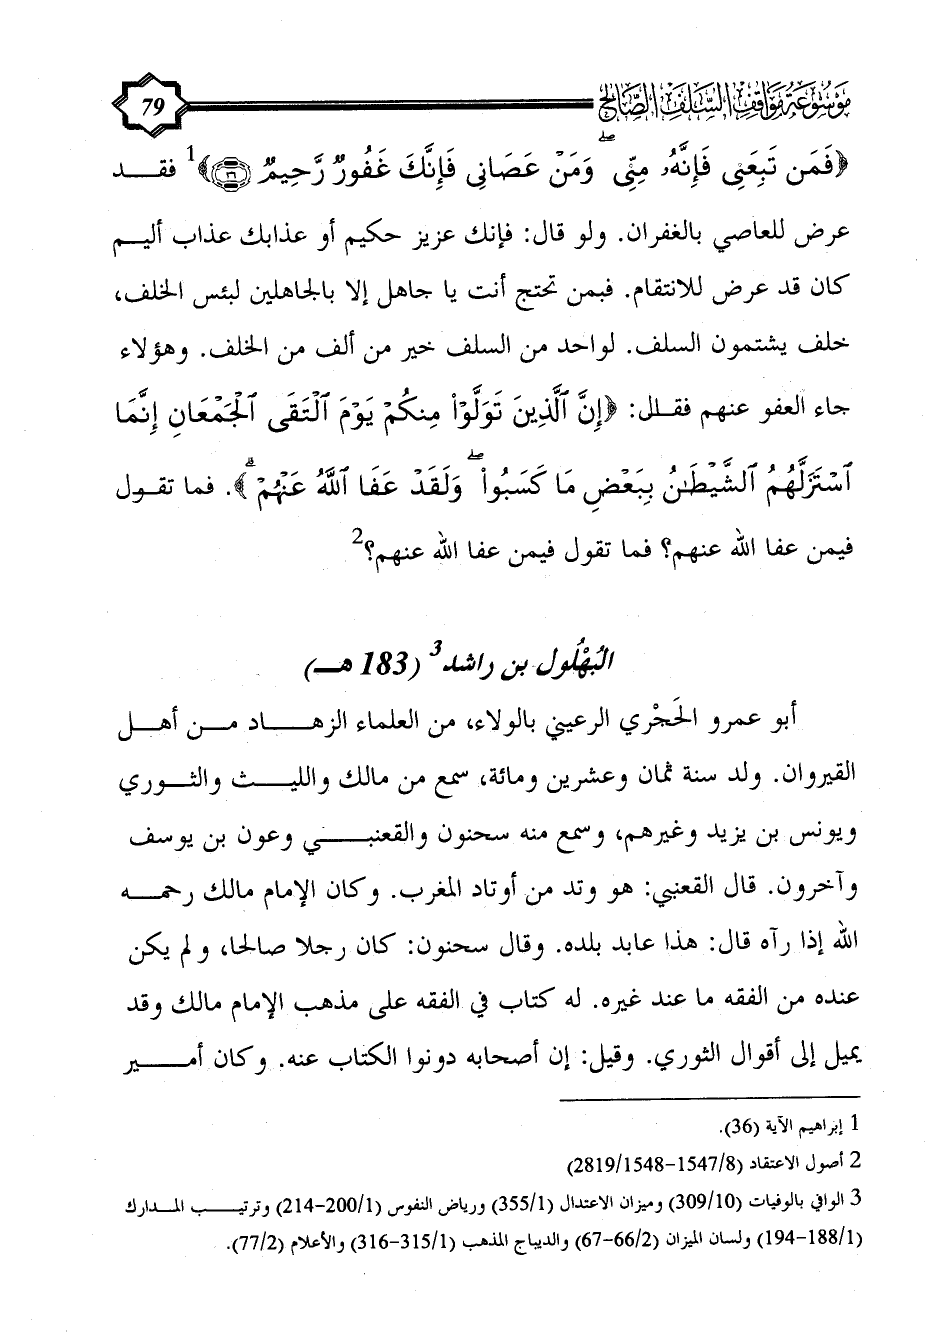 موسوعة مواقف السلف الصالح
79
﴿فَمَن تَبِعَنِي فَإِنَّهُۥ مِنِّيۖ وَمَنۡ عَصَانِي فَإِنَّكَ غَفُورٞ رَّحِيمٞ ۝٣٦﴾1 فقــد
عرض للعاصي بالغفران. ولو قال: فإنك عزيز حكيم أو عذابك عذاب أليـم
كان قد عرض للانتقام. فبمن تحتج أنت يا جاهل إلا بالجاهلين لبئس الخلف،
خلف يشتمون السلف. لواحد من السلف خير من ألف من الخلف. وهؤلاء
جاء العفو عنهم فقال: ﴿إِنَّ ٱلَّذِينَ تَوَلَّوۡاْ مِنكُمۡ يَوۡمَ ٱلۡتَقَى ٱلۡجَمۡعَانِ إِنَّمَا
ٱسۡتَزَلَّهُمُ ٱلشَّيۡطَٰنُ بِبَعۡضِ مَا كَسَبُواْۖ وَلَقَدۡ عَفَا ٱللَّهُ عَنۡهُمۡۗ﴾. فما تقـول
فيمن عفا الله عنهم؟ فما تقول فيمن عفا الله عنهم؟2
البُهْلُول بن راشد3 (183 هـ)
أبو عمرو الحَجْري الرعيني بالولاء، من العلماء الزهـــاد مــن أهــل
القيروان. ولد سنة ثمان وعشرين ومائة، سمع من مالك والليـث والثـوري
ويونس بن يزيد وغيرهم، وسمع منه سحنون والقعنبــي وعون بن يوسف
وآخرون. قال القعنبي: هو وتد من أوتاد المغرب. وكان الإمام مالك رحمـه
الله إذا رآه قال: هذا عابد بلده. وقال سحنون: كان رجلا صالحا، ولم يكن
عنده من الفقه ما عند غيره. له كتاب في الفقه على مذهب الإمام مالك وقد
يميل إلى أقوال الثوري. وقيل: إن أصحابه دونوا الكتاب عنه. وكان أمــير
1 إبراهيم الآية (36).
2 أصول الاعتقاد (8/1547-1548/2819)
3 الوافي بالوفيات (10/309) وميزان الاعتدال (1/355) ورياض النفوس (1/200-214) وترتيــب المــدارك
(1/188-194) ولسان الميزان (2/66-67) والديباج المذهب (1/315-316) والأعلام (2/77).